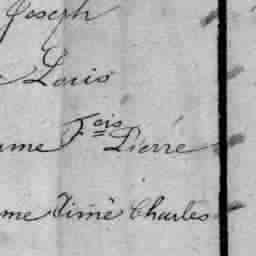 Joseph
Louis
Fois Pierre
Aimé Charles